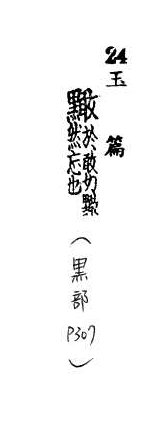 24
玉篇
於敢切
然忘也
(黑部 P307)